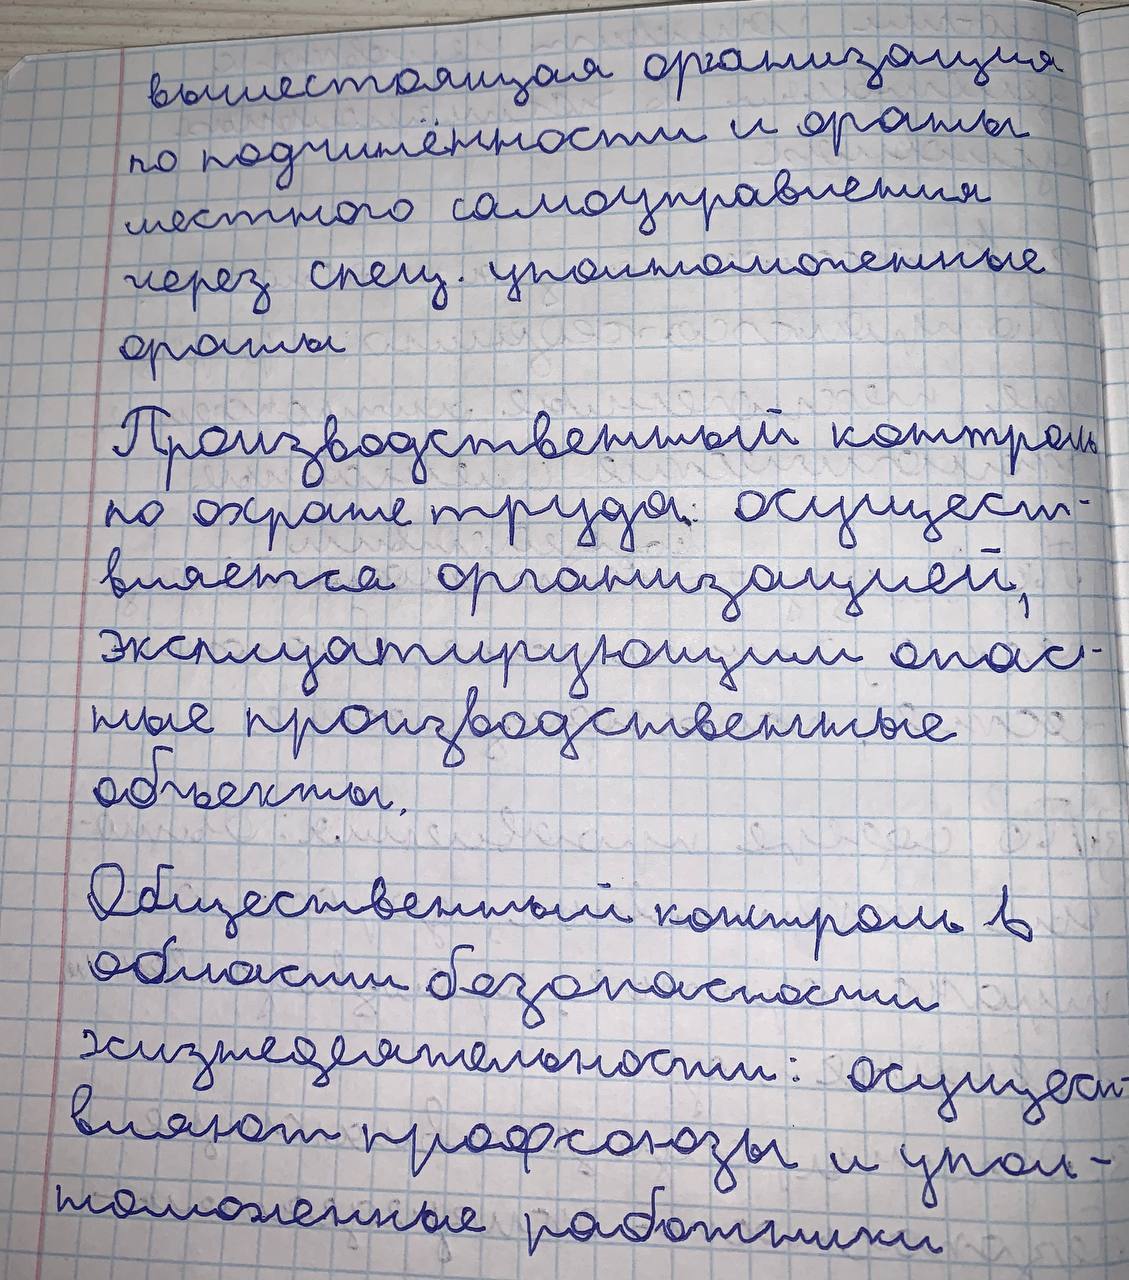 вышестоящая организация
по подчинённости и органы
местного самоуправления
через спец. уполномоченные
органы
Производственный контроль
по охране труда: осущест-
вляется организацией,
эксплуатирующим опас-
ные производственные
объекты.
Общественный контроль в
области безопасности
жизнедеятельности: осущест-
вляют профсоюзы и упол-
номоченные работники